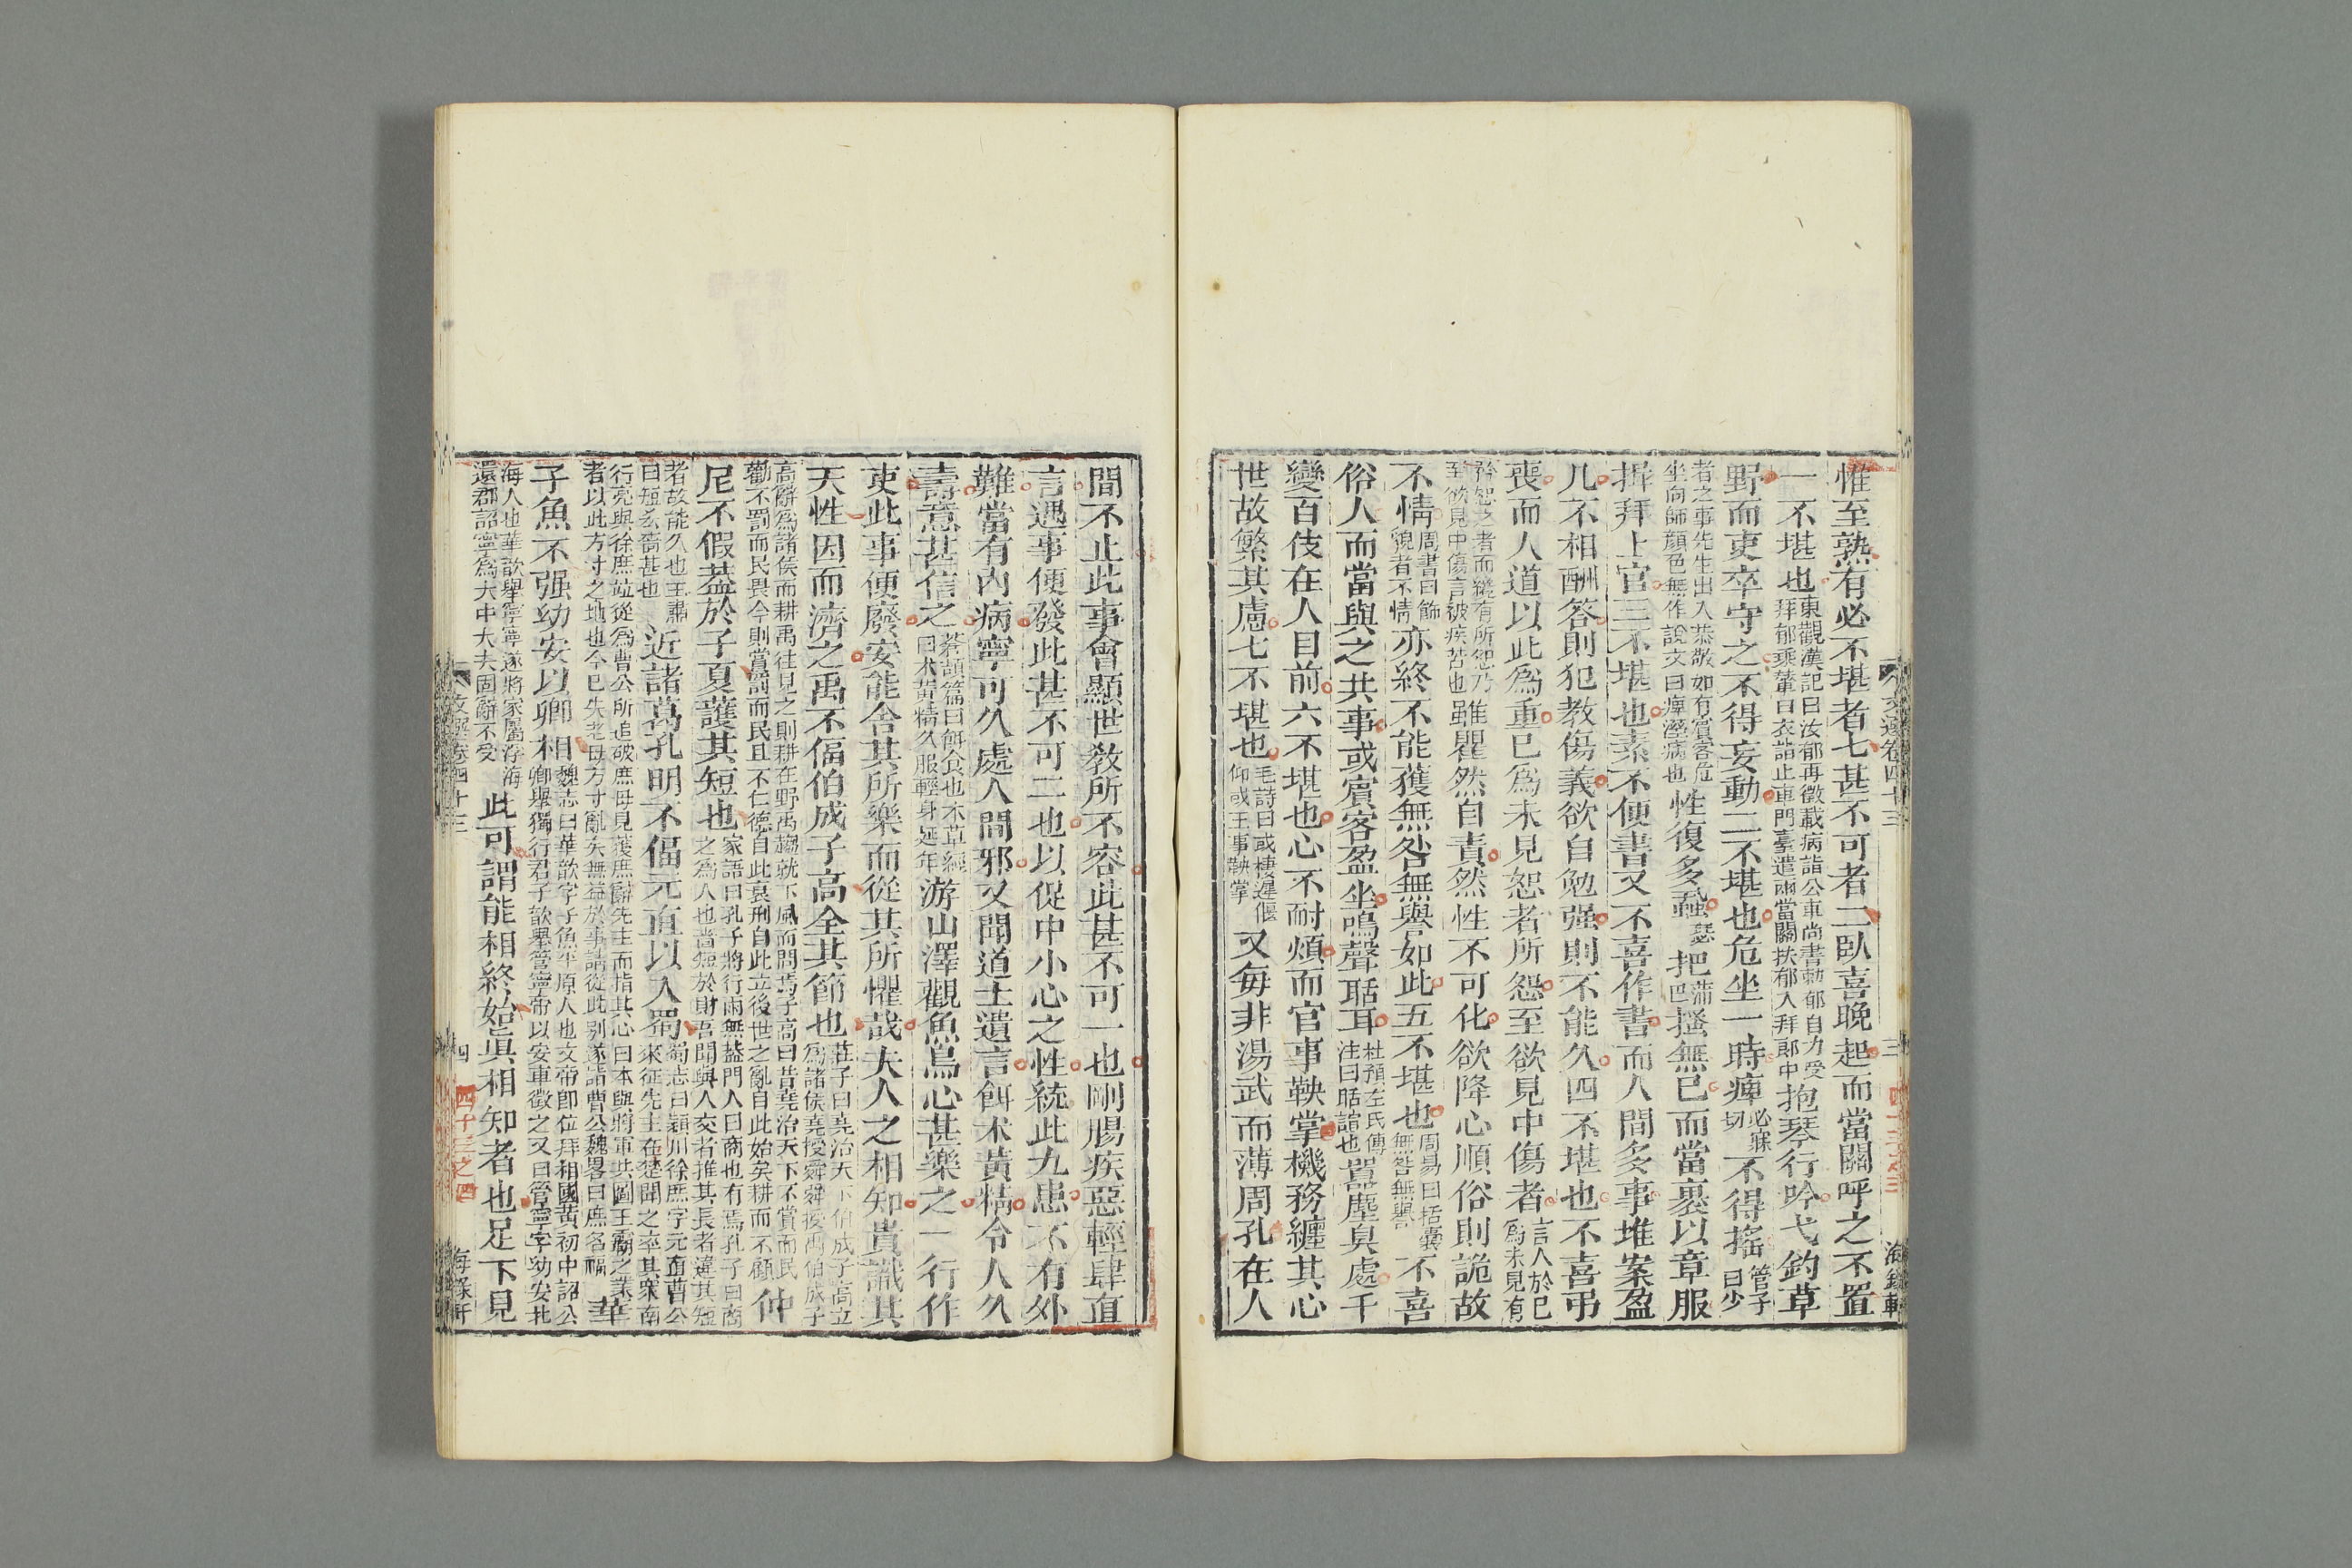 文選卷四十三 三 海錄軒
惟至熟有必不堪者七甚不可者二臥喜晚起而當關呼之不置
一不堪也東觀漢記曰汝郁再徵載病詣公車尚書勑郁自力受
拜郁乘輦白衣詣止車門臺遣兩當關扶郁入拜郎中抱琴行吟弋釣草
野而吏卒守之不得妄動二不堪也危坐一時痺必寐
切不得搖管子
曰少
者之事先生出入恭敬如有賓客危
坐向師顏色無作說文曰痺溼病也性復多蝨瑟把蒲
巴搔無已而當裹以章服
揖拜上官三不堪也素不便書又不喜作書而人間多事堆案盈
几不相酬答則犯教傷義欲自勉强則不能久四不堪也不喜弔
喪而人道以此爲重已爲未見恕者所怨至欲見中傷者言人於已
爲未見有
矜恕之者而纔有所怨乃
至欲見中傷言被疾苦也雖瞿然自責然性不可化欲降心順俗則詭故
不情周書曰飾
貌者不情亦終不能獲無咎無譽如此五不堪也周易曰括囊
無咎無譽不喜
俗人而當與之共事或賓客盈坐鳴聲聒耳杜預左氏傳
注曰聒讙也囂塵臭處千
變百伎在人目前六不堪也心不耐煩而官事鞅掌機務纏其心
世故繁其慮七不堪也毛詩曰或棲遲偃
仰或王事鞅掌又每非湯武而薄周孔在人
間不止此事會顯世敎所不容此甚不可一也剛腸疾惡輕肆直
言遇事便發此甚不可二也以促中小心之性統此九患不有外
難當有內病寧可久處人間邪又聞道士遺言餌朮黃精令人久
壽意甚信之蒼頡篇曰餌食也本草經
曰朮黃精久服輕身延年游山澤觀魚鳥心甚樂之一行作
吏此事便廢安能舍其所樂而從其所懼哉夫人之相知貴識其
天性因而濟之禹不偪伯成子高全其節也莊子曰堯治天下伯成子高立
爲諸侯堯授舜舜授禹伯成子
高辭爲諸侯而耕禹往見之則耕在野禹趨就下風而問焉子高曰昔堯治天下不賞而民
勸不罰而民畏今則賞罰而民且不仁德自此衰刑自此立後世之亂自此始矣耕而不顧仲
尼不假蓋於子夏護其短也家語曰孔子將行雨無蓋門人曰商也有焉孔子曰商
之爲人也嗇短於財吾聞與人交者推其長者違其短
者故能久也王肅
曰短𠫤嗇甚也近諸葛孔明不偪元直以入蜀蜀志曰潁川徐庶字元直曹公
來征先主在楚聞之率其衆南
行亮與徐庶竝從爲曹公所追破庶母見獲庶辭先主而指其心曰本與將軍共圖王霸之業
者以此方寸之地也今已失老母方寸亂矣無益於事請從此別遂詣曹公魏略曰庶名福華
子魚不强幼安以卿相魏志曰華歆字子魚平原人也文帝卽位拜相國黃初中詔公
卿舉獨行君子歆舉管寧帝以安車徵之又曰管寧字幼安北
海人也華歆舉寧寧遂將家屬浮海
還郡詔寧爲太中大夫固辭不受此可謂能相終始眞相知者也足下見
文選卷四十三 四 四十三之四 海錄軒